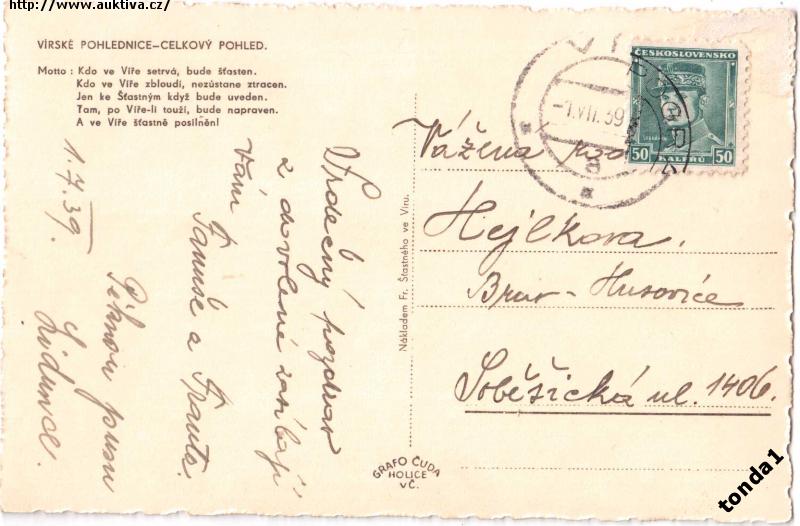 http://www.auktiva.cz/
VÍRSKÉ POHLEDNICE–CELKOVÝ POHLED.
Motto : Kdo ve Víře setrvá, bude šťasten.
Kdo ve Víře zbloudí, nezůstane ztracen.
Jen ke Šťastným když bude uveden.
Tam, po Víře-li touží, bude napraven.
A ve Víře šťastně posilněn!
1.7.39.
Srdečný pozdrav
z dovolené
Vám
a
Lidunce
Nákladem Fr. Šťastného ve Víru.
GRAFO ČUDA
HOLICE
VČ.
ČESKOSLOVENSKO
50 HALÉŘŮ 50
-1.VII.39
Vážená
Hejlkova.
Brno - Husovice
Soběšická ul. 1406.
tonda1